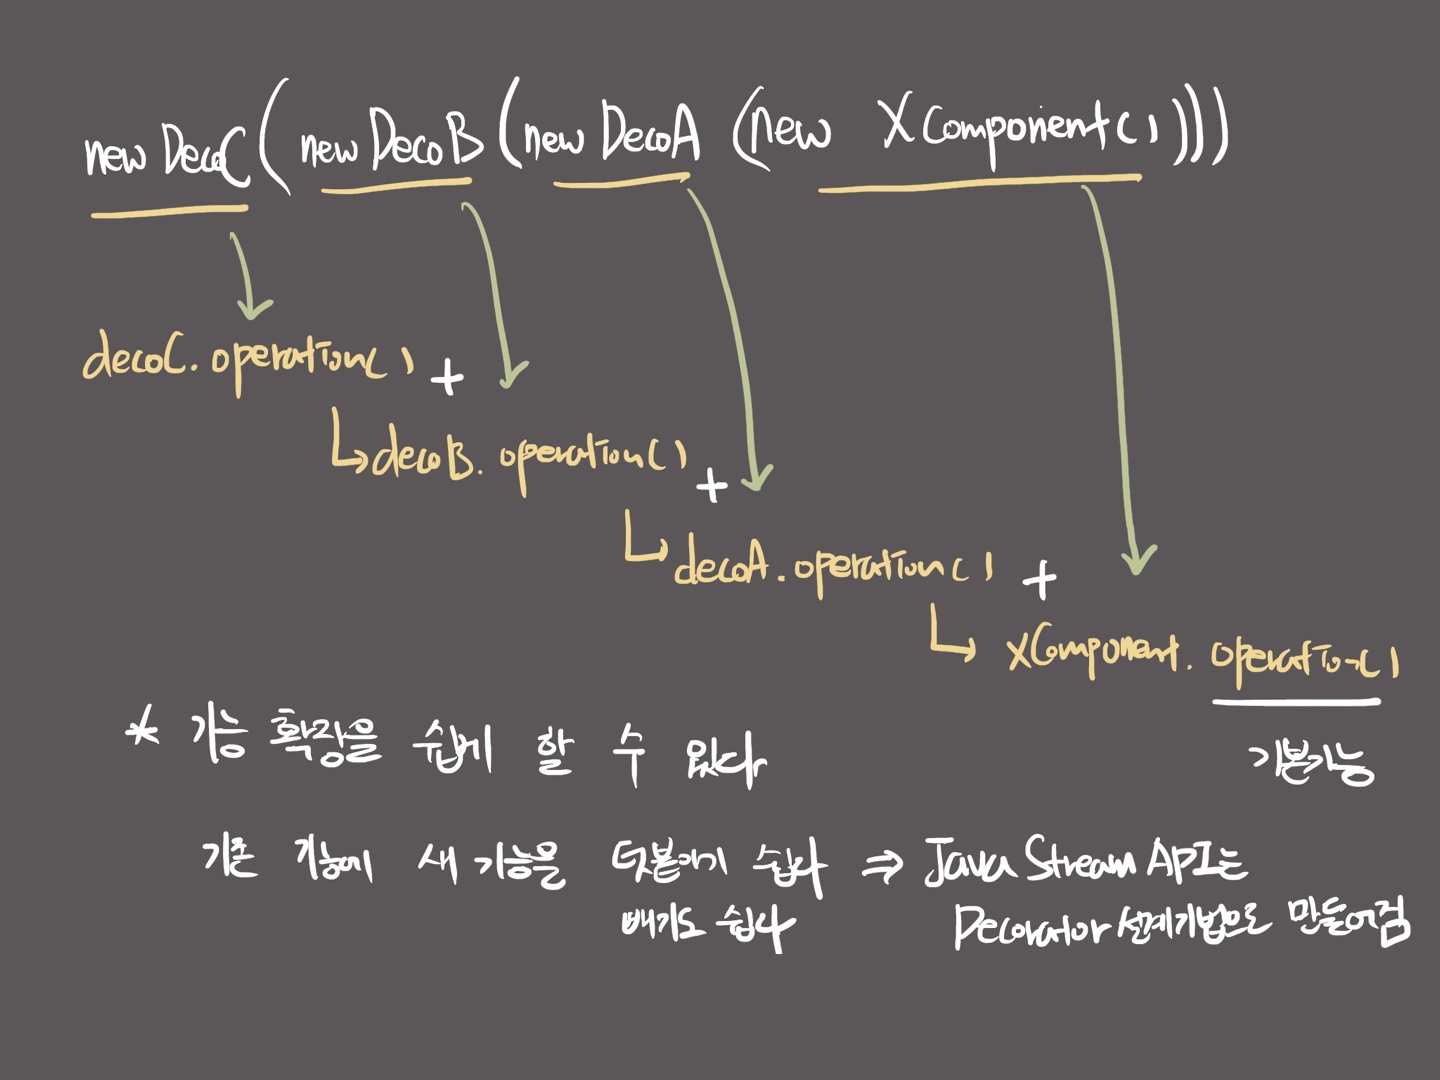 new DecoC ( new DecoB ( new DecoA ( new XComponent( ) ) ) )
decoC. operation( ) +
decoB. operation( ) +
decoA. operation( ) +
xComponent. operation( )
* 기능 확장을 쉽게 할 수 있다
기본기능
기존 기능에 새 기능을 덧붙이기 쉽다 ⇒ Java Stream API는
빼기도 쉽다
Decorator 설계기법으로 만들어짐